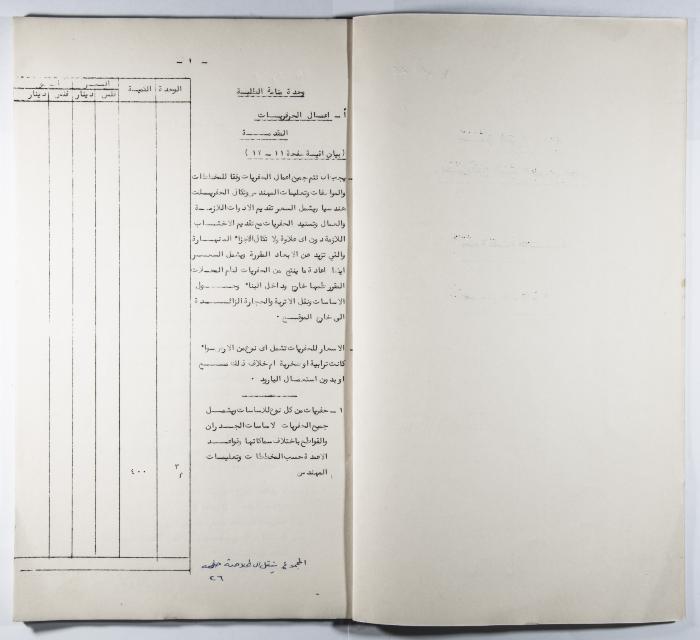 - ١ -
وحدة بناية الطلبة
أ - اعمال الحفريات
المقدمة
( بيان اقيسة صفحة ١١ - ١٧ )
الوحدة القيمة السعر المبلغ
فلس دينار فلس دينار
يجب ان تتم جميع اعمال الحفريات وفقا للمخططات
والمواصفات وتعليمات المهندس وتكال الحفريات
هندسيا ويشمل السعر تقديم الادوات اللازمة
والعمال وتصنيد الحفريات مع تقديم الاخشاب
اللازمة دون اى علاوة ولا تكال الاجزاء المنهارة
والتي تزيد عن الابعاد المقررة ويشمل السعر
ايضا اعادة ما ينتج من الحفريات لدفم المحلات
المقرر طمها خارج وداخل البناء وحول
الاساسات ونقل الاتربة والحجارة الزائدة
الى خارج الموقع .
الاسعار للحفريات تشمل اى نوع من الارض سواء
كانت ترابية او صخرية ام خلاف ذلك مع
او بدون استعمال البارود .
١ - حفريات من كل نوع للاساسات ويشمل
جميع الحفريات لاساسات الجدران
والقواطع باختلاف سماكاتها وقواعد
الاعمدة حسب المخططات وتعليمات
المهندس
م٣ ٤٠٠
المجموع ينقل الى خلاصة صفحه
٢٦